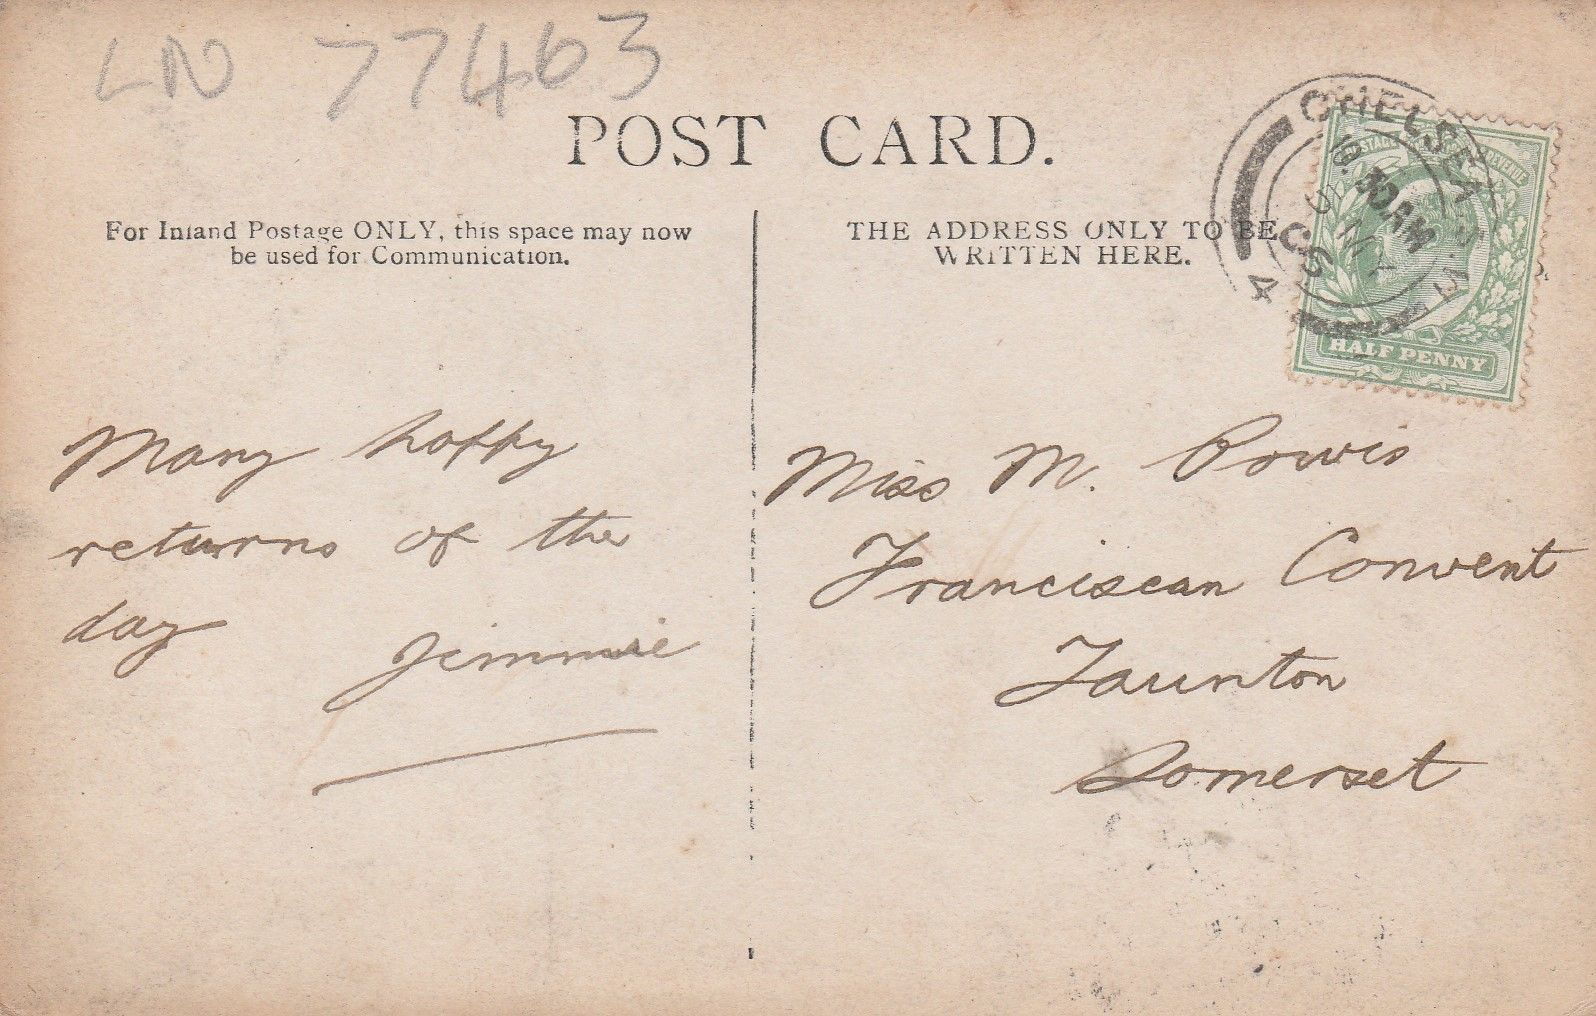 LN 77463
POST CARD.
For Inland Postage ONLY, this space may now
be used for Communication.
THE ADDRESS ONLY TO BE
WRITTEN HERE.
CHELSEA S.W.
10.30AM
MY
06
4
POSTAGE REVENUE
HALF PENNY
Many happy
returns of the
day
Jimmie
Miss M. Powis
Franciscan Convent
Taunton
Somerset